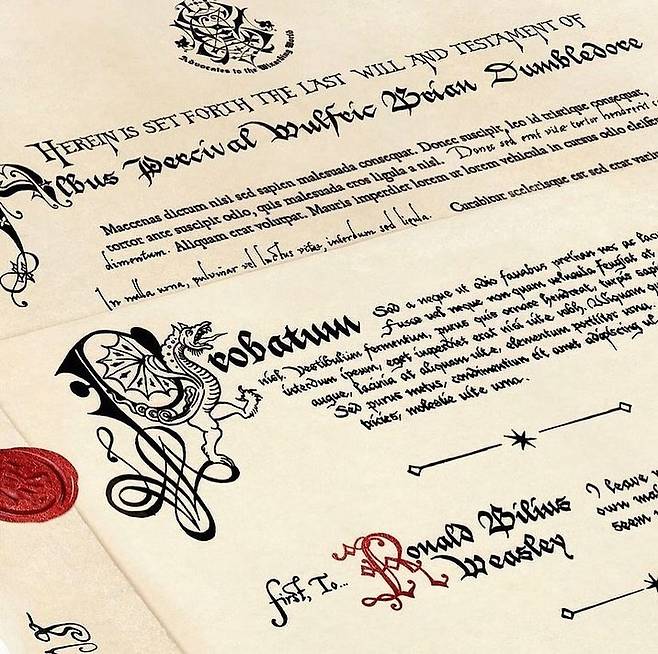 Advocates to the Wizarding World
HEREIN IS SET FORTH THE LAST WILL AND TESTAMENT OF
Albus Percival Wulfric Brian Dumbledore
Maecenas dictum nisl sed sapien malesuada consequat. Donec suscipit, leo id tristique consequat,
tortor ante suscipit odio, quis malesuada eros ligula a nisl. Donec sed erat vitae tortor hendrerit
dimentum. Aliquam erat volutpat. Mauris imperdiet lorem ut lorem vehicula in cursus odio eleifen
In nulla urna, pulvinar vel luctus vitae, interdum sed ligula. Curabitur scelerisque est sed erat variu
Probatum
Sed a neque ut odio faucibus pretium nec ac lacu
Fusce vel neque non quam vehicula feugiat at
nisl. Vestibulum fermentum, purus quis ornare hendrerit, turpis sapie
interdum ipsum, eget imperdiet erat nisi vitae nibh. Aliquam qu
augue, lacinia at aliquam vitae, elementum porttitor urna.
Sed purus metus, condimentum sit amet adipiscing ul
tricies, molestie vitae urna.
first, To...
Ronald Bilius
Weasley
I leave
own mak
seem